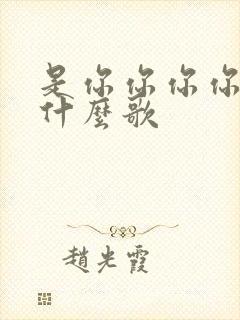 是你你你你
什麼歌
趙光霞